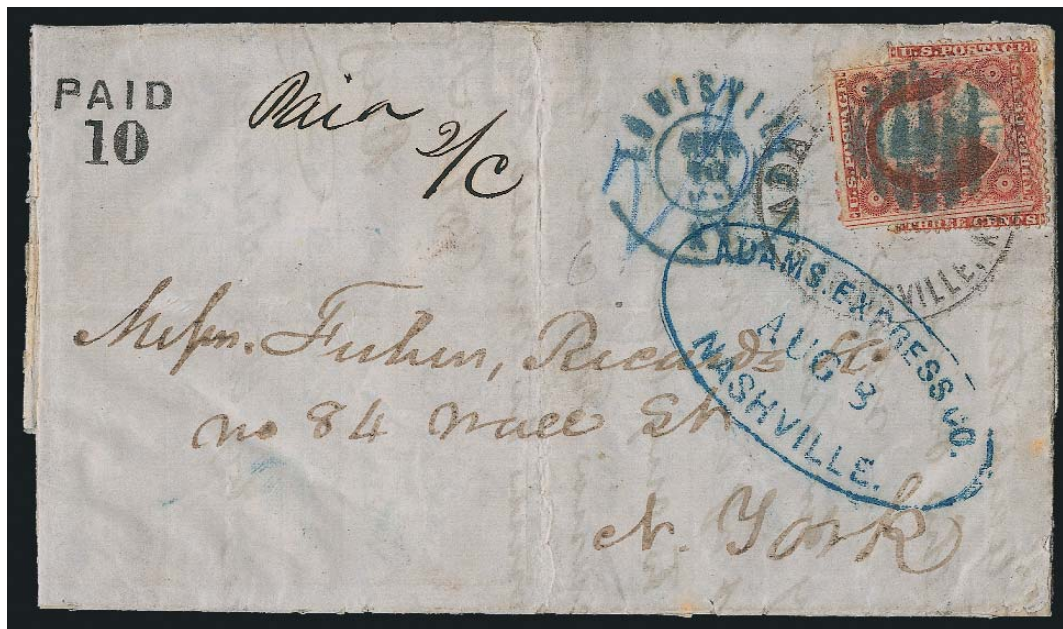 PAID
10
Paid
2/C
LOUISVILLE
U.S. POSTAGE
U.S. POSTAGE
THREE CENTS
ADAMS
VILLE,
ADAMS. EXPRESS CO.
AUG 3
NASHVILLE.
Messrs. Fisher, Ricards & Co
no 84 Wall St
N. York